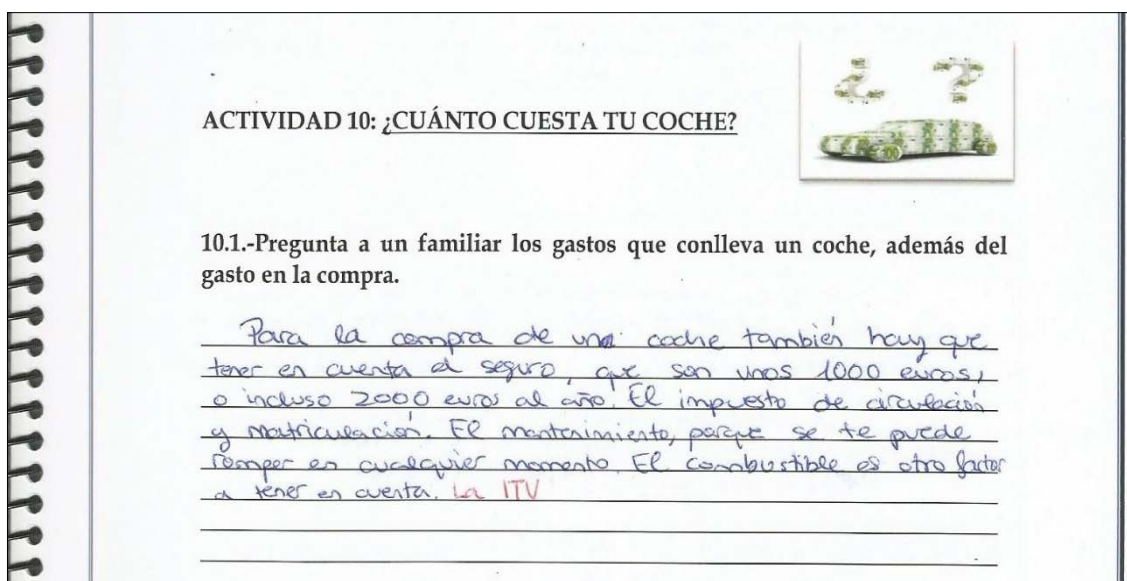 ¿ ?
ACTIVIDAD 10: ¿CUÁNTO CUESTA TU COCHE?
10.1.-Pregunta a un familiar los gastos que conlleva un coche, además del
gasto en la compra.
Para la compra de un coche también hay que
tener en cuenta el seguro, que son unos 1000 euros,
o incluso 2000 euros al año. El impuesto de circulación
y matriculación. El mantenimiento, porque se te puede
romper en cualquier momento. El combustible es otro factor
a tener en cuenta. La ITV